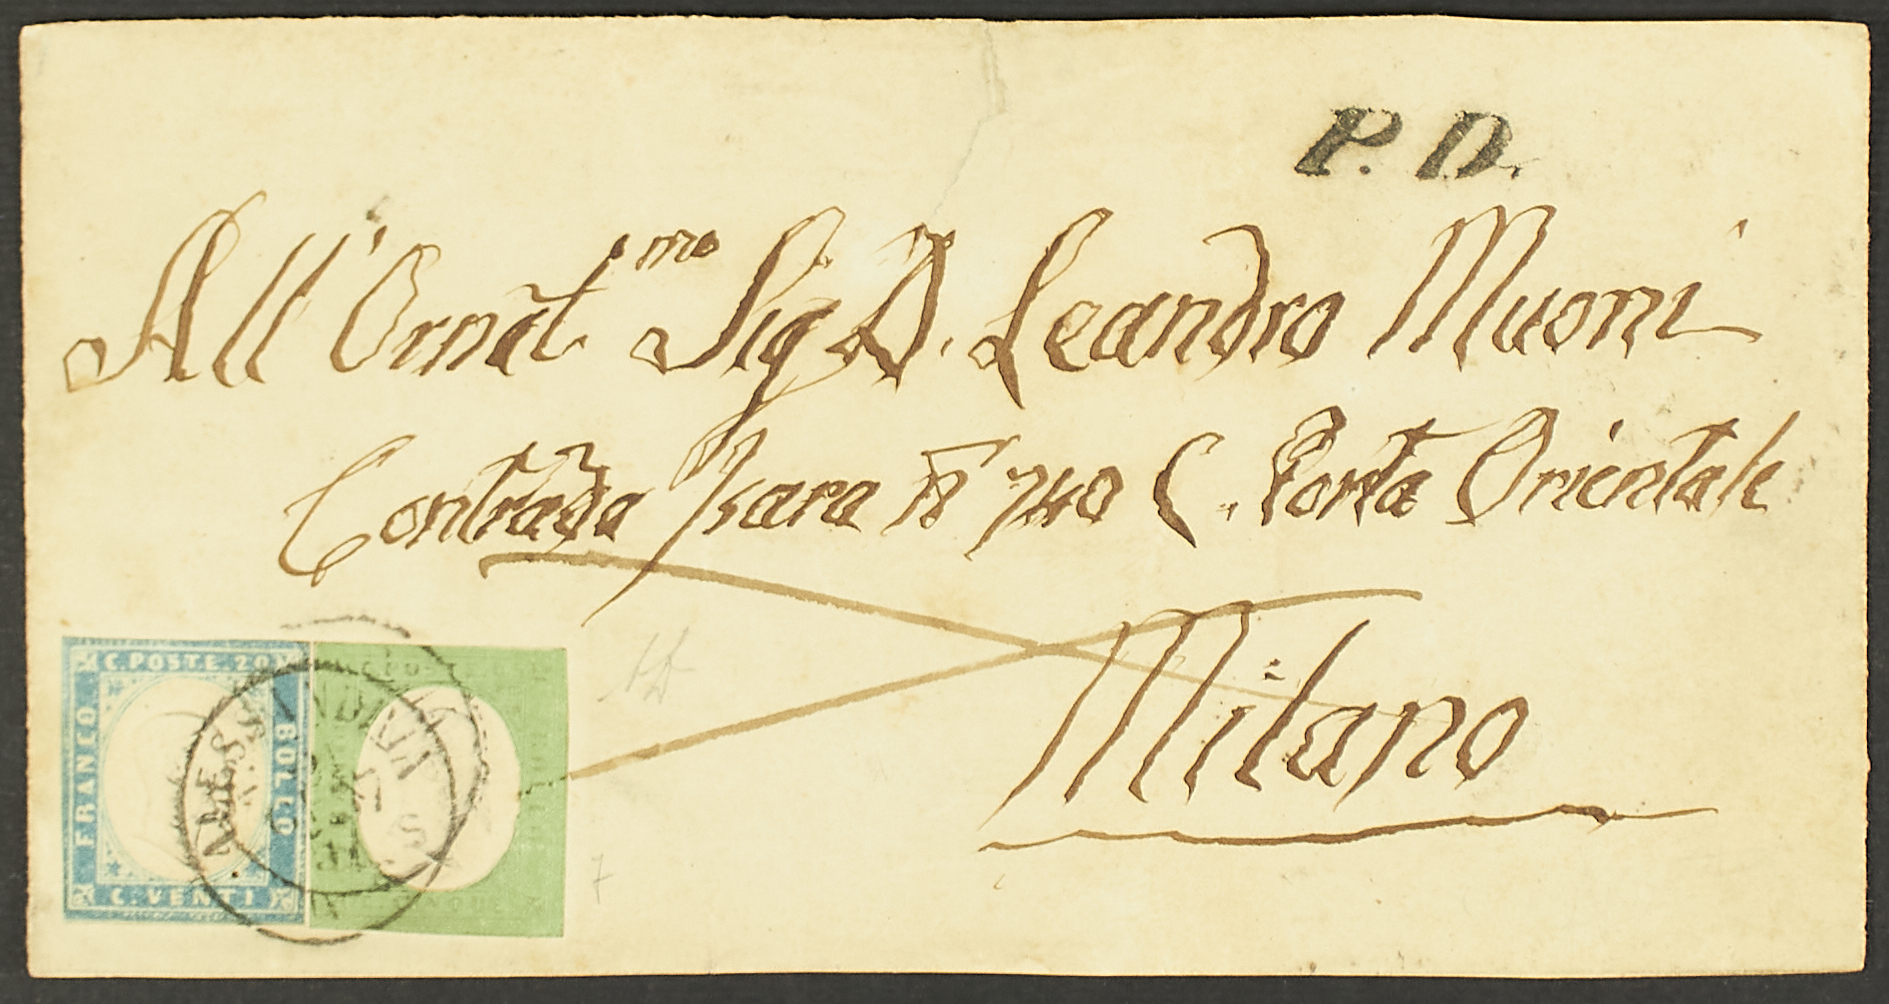 P. D.
All' Ornat.mo Sig D. Leandro Muoni
Contrada Isara n 740 C. Porta Orientale
Milano
C. POSTE. 20
FRANCO
BOLLO
C. VENTI
ALESSANDRIA
CINQUE
7